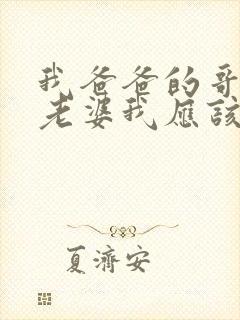 我爸爸的哥
老婆我应该
夏济安